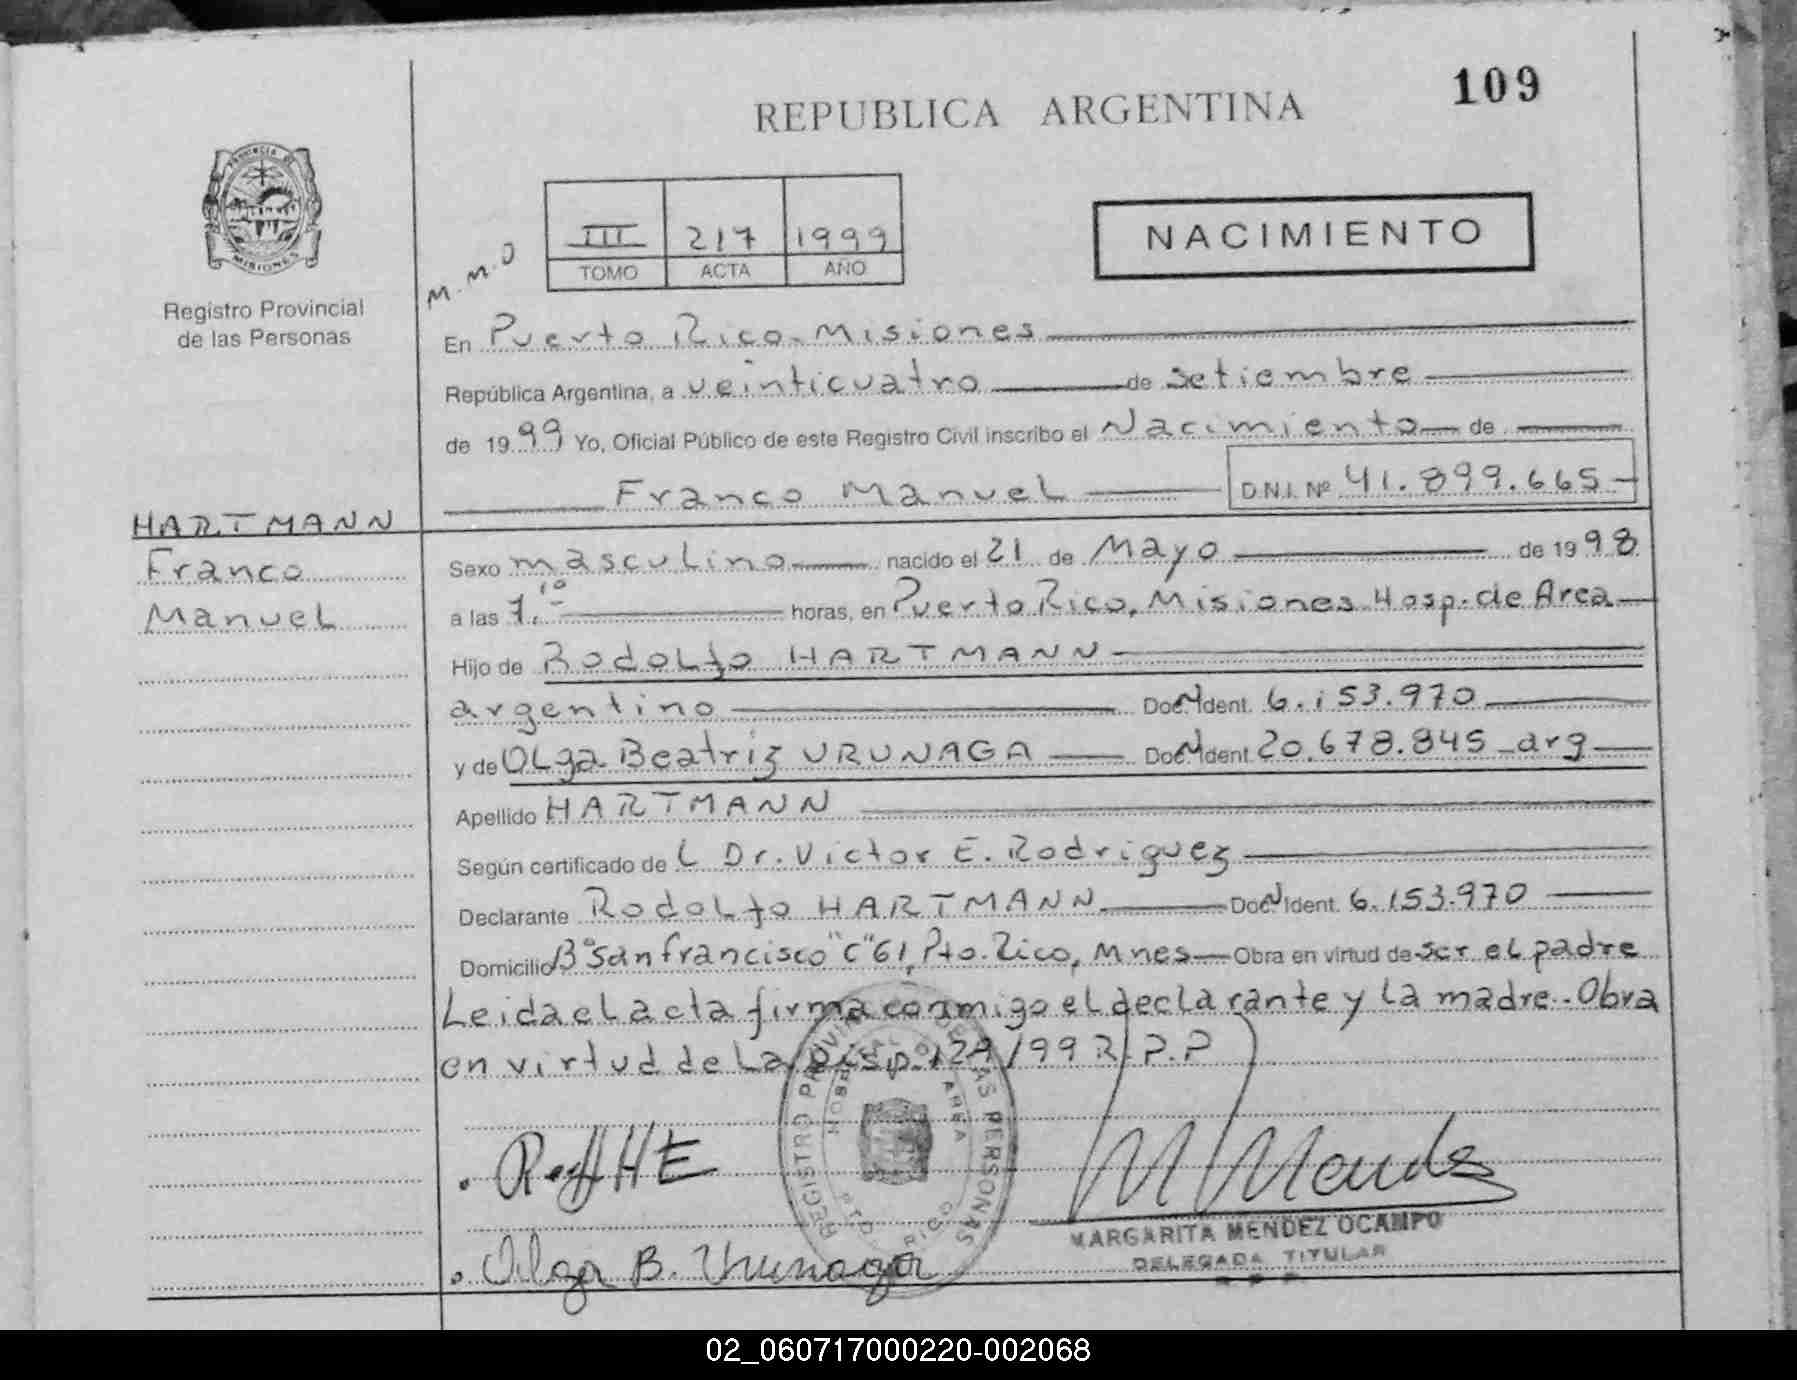 109
REPUBLICA ARGENTINA
PROVINCIA DE
MISIONES
Registro Provincial
de las Personas
M.M.O
III 217 1999
TOMO ACTA AÑO
NACIMIENTO
En Puerto Rico. Misiones
República Argentina, a veinticuatro de setiembre
de 1999 Yo, Oficial Público de este Registro Civil inscribo el Nacimiento de
Franco Manuel D.N.I. Nº 41.899.665.-
HARTMANN
Franco
Manuel
Sexo masculino nacido el 21 de Mayo de 1998
a las 7,10 horas, en Puerto Rico, Misiones Hosp. de Area
Hijo de Rodolfo HARTMANN
argentino Doc. Ident. 6.153.970
y de Olga Beatriz URUNAGA Doc. Ident. 20.678.845 arg
Apellido HARTMANN
Según certificado de L Dr. Victor E. Rodriguez
Declarante Rodolfo HARTMANN Doc. Ident. 6.153.970
Domicilio Bº San francisco "C" 61, Pto. Rico, Mnes Obra en virtud de ser el padre
Leida el acta firma conmigo el declarante y la madre.. Obra
en virtud de la Disp. 129/99 R.P.P
REGISTRO PROVINCIAL DE LAS PERSONAS
HOSPITAL DE AREA
PTO RICO
Olga B. Urunaga
MARGARITA MENDEZ OCAMPO
DELEGADA TITULAR
02_060717000220-002068